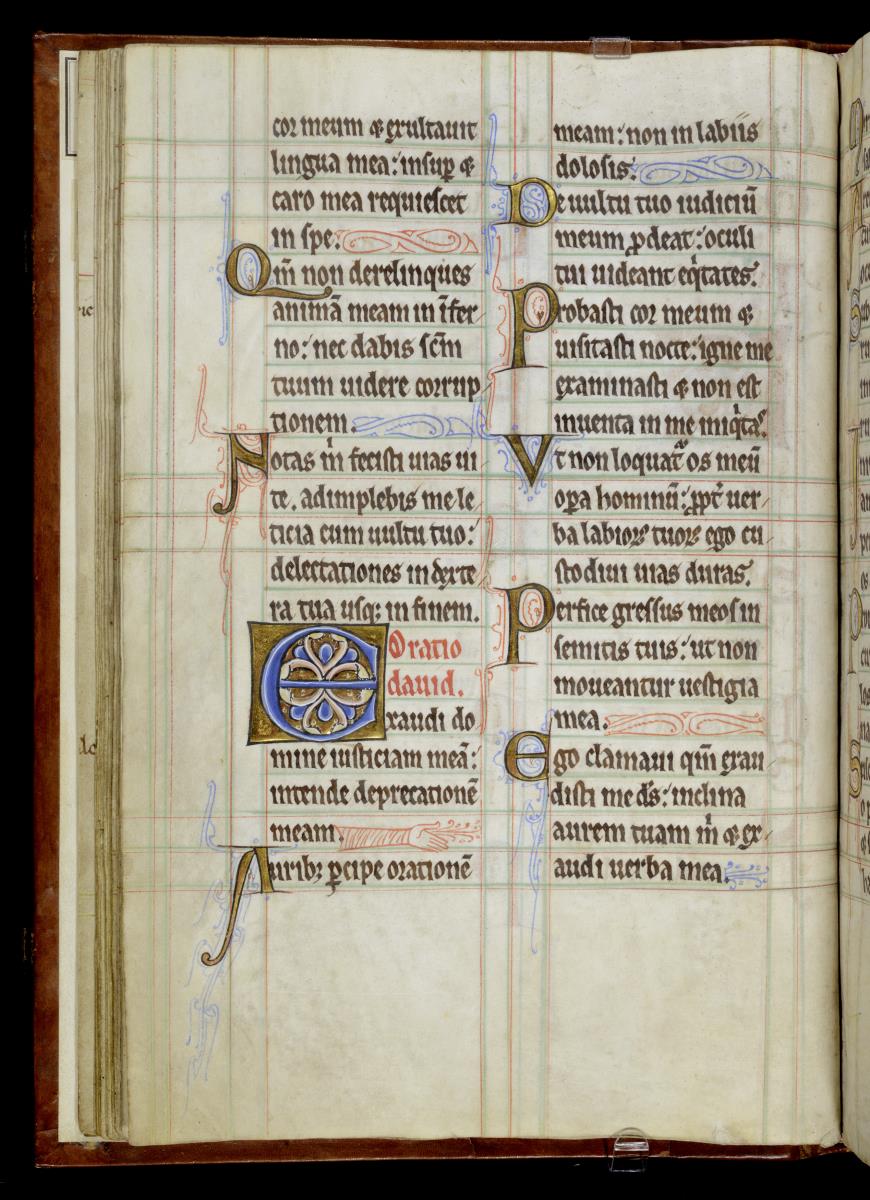 cor meum ⁊ exultauit
lingua mea: insup̱ ⁊
caro mea requiescet
in spe.
Qm̄ non derelinques
animā meam in īfer
no: nec dabis scm̄
tuum uidere corrup
tionem.
Notas m̄ fecisti uias ui
te. adimplebis me le
ticia cum uultu tuo:
delectationes in dexte
ra tua usq; in finem.
Oratio
dauid.
Exaudi do
mine iusticiam meā:
intende deprecationē
meam.
Aurib; ꝑcipe orationē
meam: non in labiis
dolosis.
De uultu tuo iudiciū
meum ꝓdeat: oculi
tui uideant eqͥtates.
Probasti cor meum ⁊
uisitasti nocte: igne me
examinasti ⁊ non est
inuenta in me iniqͥtas.
Vt non loquat᷑ os meū
oꝑa hominū: ꝓpt̄ uer
ba labioꝝ tuoꝝ ego cu
stodiui uias duras.
Perfice gressus meos in
semitis tuis: ut non
moueantur uestigia
mea.
Ego clamaui qm̄ exau
disti me ds̄: inclina
aurem tuam m̄ ⁊ ex
audi uerba mea.